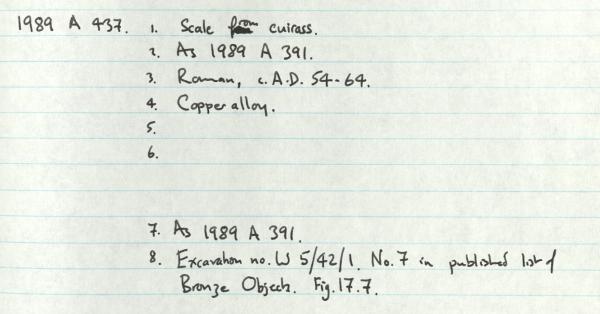 1989 A 437. 1. Scale from cuirass.
2. As 1989 A 391.
3. Roman, c. A.D. 54-64.
4. Copper alloy.
5.
6.
7. As 1989 A 391.
8. Excavation no. W 5/42/1. No. 7 in published list of
Bronze Objects. Fig. 17.7.